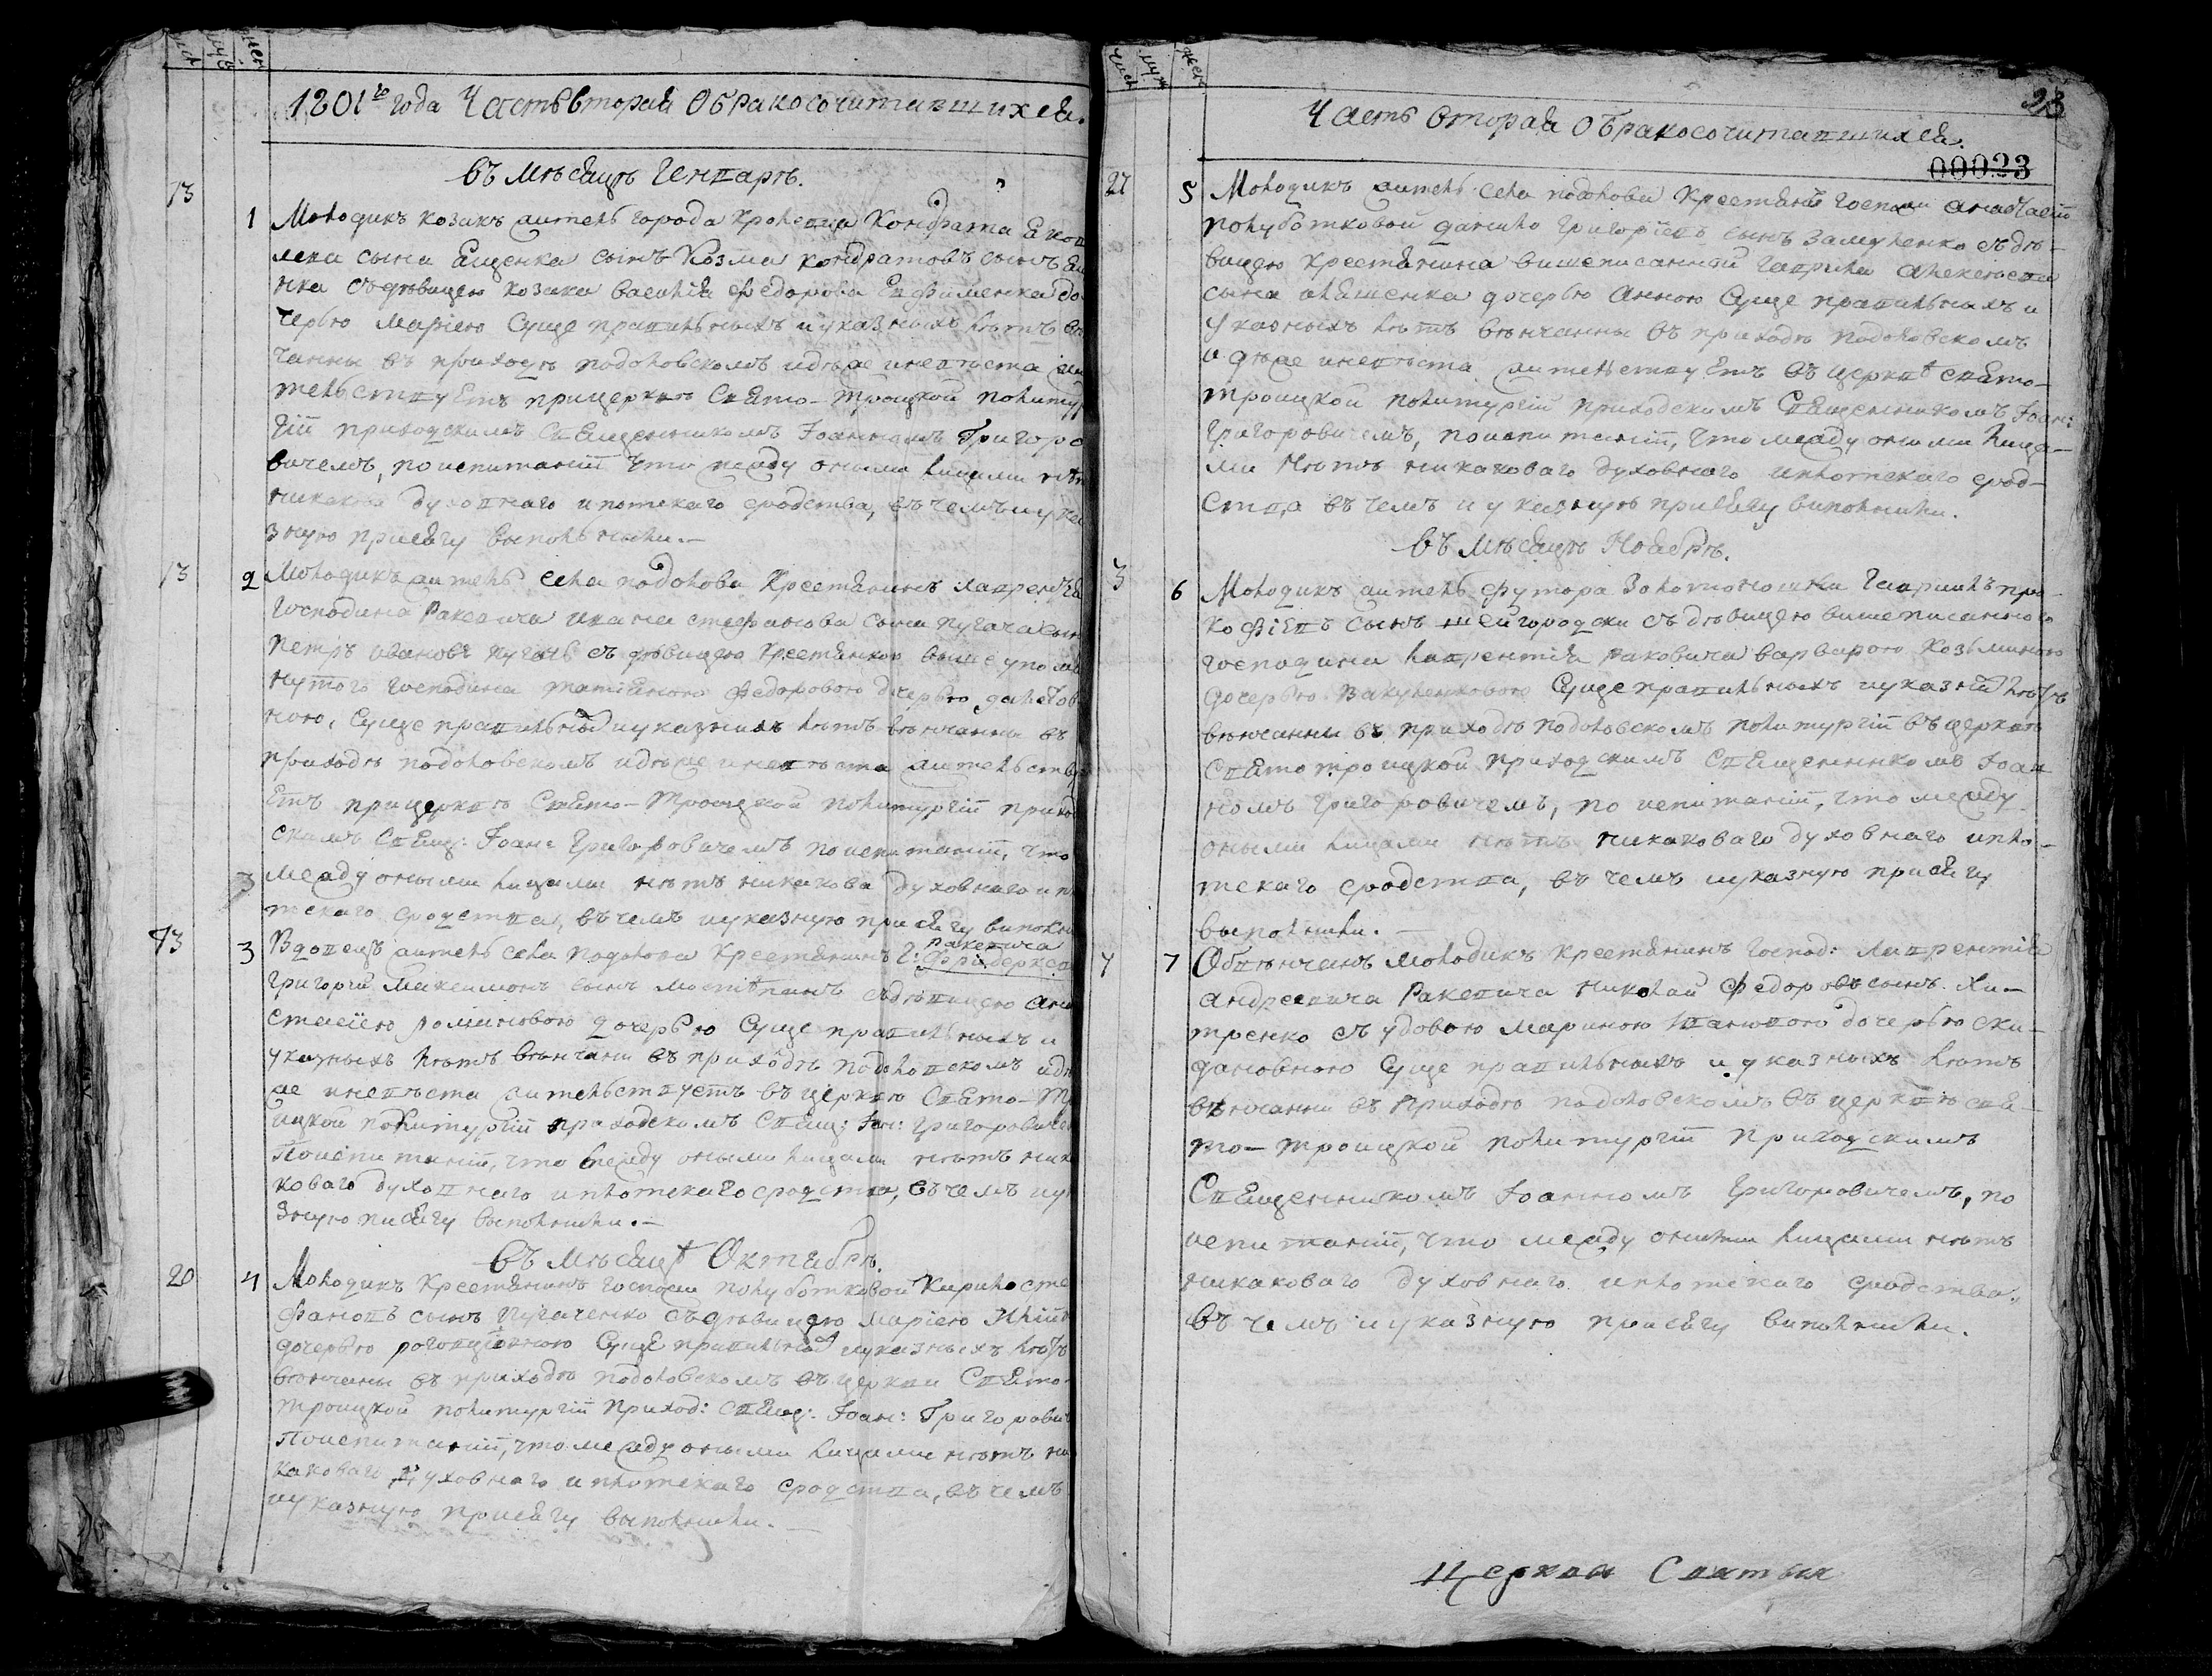 1801го года Часть вторая О бракосочитавшихся.
въ мѣсяцѣ Генварѣ.
13
1 Молодикъ козакъ житель города Кролевца Кондрата Яков
лева сына Ященка сынъ Козма Кондратовъ сынъ Ящ
нка съ дѣвицею козака Василия Федорова Евфименка до
черью Мариею суще правильныхъ и указныхъ лѣтъ вѣн
чанны въ приходѣ подоловскомъ идѣже и невѣста жи
тельствуетъ при церквѣ Свято-Троицкой по литур
гіи приходскимъ Священникомъ Іоанномъ Григоро
вичемъ, по испитаніи что между оными лицами нѣт
никакова духовнаго и плотскаго сродства, въ чемъ и ука
зную присягу выполнили.-
13
2 Молодикъ житель села Подолова Крестянинъ Лаврентія
Господина Раковича Ивана Стефанова сына Пугача сын
Петръ Ивановъ Пугачь съ дѣвицею Крестянкою выше упомя
нутого господина Татіяною Федоровою дочерью
ною, суще правильных и указныхъ лѣтъ вѣнчанны въ
приходѣ подоловскомъ идѣже и невѣста жительству
етъ при церквѣ Свято-Троицкой по литургіи приход
скимъ Свящ: Іоан: Григоровичемъ по испитаніи, что
между оными лицами нѣтъ никакова духовнаго и пл
тскаго сродства, въ чемъ и указную присягу виполни
13
3 Вдовецъ житель села Подолова Крестянинъ Г: Раковича
Григорій Максимовъ сынъ съ дѣвицею Ана
стасіею Романовою дочерью суще правильныхъ и
указныхъ лѣтъ вѣнчани въ приходѣ подоловскомъ идѣ
же и невѣста жительствуетъ въ церквѣ Свято-Тр
ицкой по литургіи приходскимъ Свящ: Іоан: Григорович
По испитаніи, что между оными лицами нѣтъ ника
коваго духовнаго и плотскаго сродства, въ чемъ и ук
зную присягу выполнили.-
въ мѣсяцѣ Октябрѣ.
20
4 Молодикъ Крестянинъ госпожи Полуботковой Кирило Сте
фановъ сынъ Пугаченко съ дѣвицею Маріею
дочерью суще правильных и указныхъ лѣтъ
вѣнчаны въ приходѣ подоловскомъ въ церкви Свято-
Троицкой по литургіи приход: Свящ: Іоан: Григорови
По испитаніи, что между оными лицами нѣтъ ни
каковаго духовнаго и плотскаго сродства, въ чемъ
и указную присягу выполнили.-
23
Часть вторая О бракосочитавшихся.
00023
27
5 Молодикъ житель села Подолова Крестянинъ госпожи Анастасіи
Полуботковой Данило Григоріевъ сынъ съ дѣ-
вицею Крестянина вишеписанной Гаврила Алексѣева
сына дочерью Анною суще правильныхъ и
указныхъ лѣтъ вѣнчанны въ приходѣ подоловскомъ
идѣже и невѣста жительствуетъ въ церквѣ Свято-
Троицкой по литургіи приходскимъ Священникомъ Іоан:
Григоровичемъ, по испитаніи, что между оными лица-
ми нѣтъ никаковаго духовнаго и плотскаго срод-
ства въ чемъ и указную присягу виполнили.
въ мѣсяцѣ Ноябрѣ.
3
6 Молодикъ житель футора Золотоношки Гавріилъ Про-
кофіевъ сынъ съ дѣвицею вишеписанного
господина Лаврентія Раковича Варварою Козьминою
дочерью суще правильныхъ и указних лѣтъ
вѣнчанны въ приходѣ подоловскомъ по литургіи въ церквѣ
Свято Троицкой приходскимъ Священникомъ Іоан
номъ Григоровичемъ, по испитаніи, что между
оными лицами нѣтъ никаковаго духовнаго и пло-
тскаго сродства, въ чемъ и указную присягу
выполнили.-
7 Обвѣнчанъ молодикъ Крестянинъ господ: Лаврентія
Андреевича Раковича Николай Федоровъ сынъ Хи-
тренко съ удовою Мариною Ивановою дочерью
суще правильныхъ и указныхъ лѣтъ
вѣнчанни въ приходѣ подоловскомъ въ церквѣ Свя-
то-Троицкой по литургіи приходскимъ
Священникомъ Іоанномъ Григоровичемъ, по
испитаніи, что между оними лицами нѣтъ
никаковаго духовнаго и плотскаго сродства,
въ чемъ и указную присягу виполнили.
Церкви Святыя